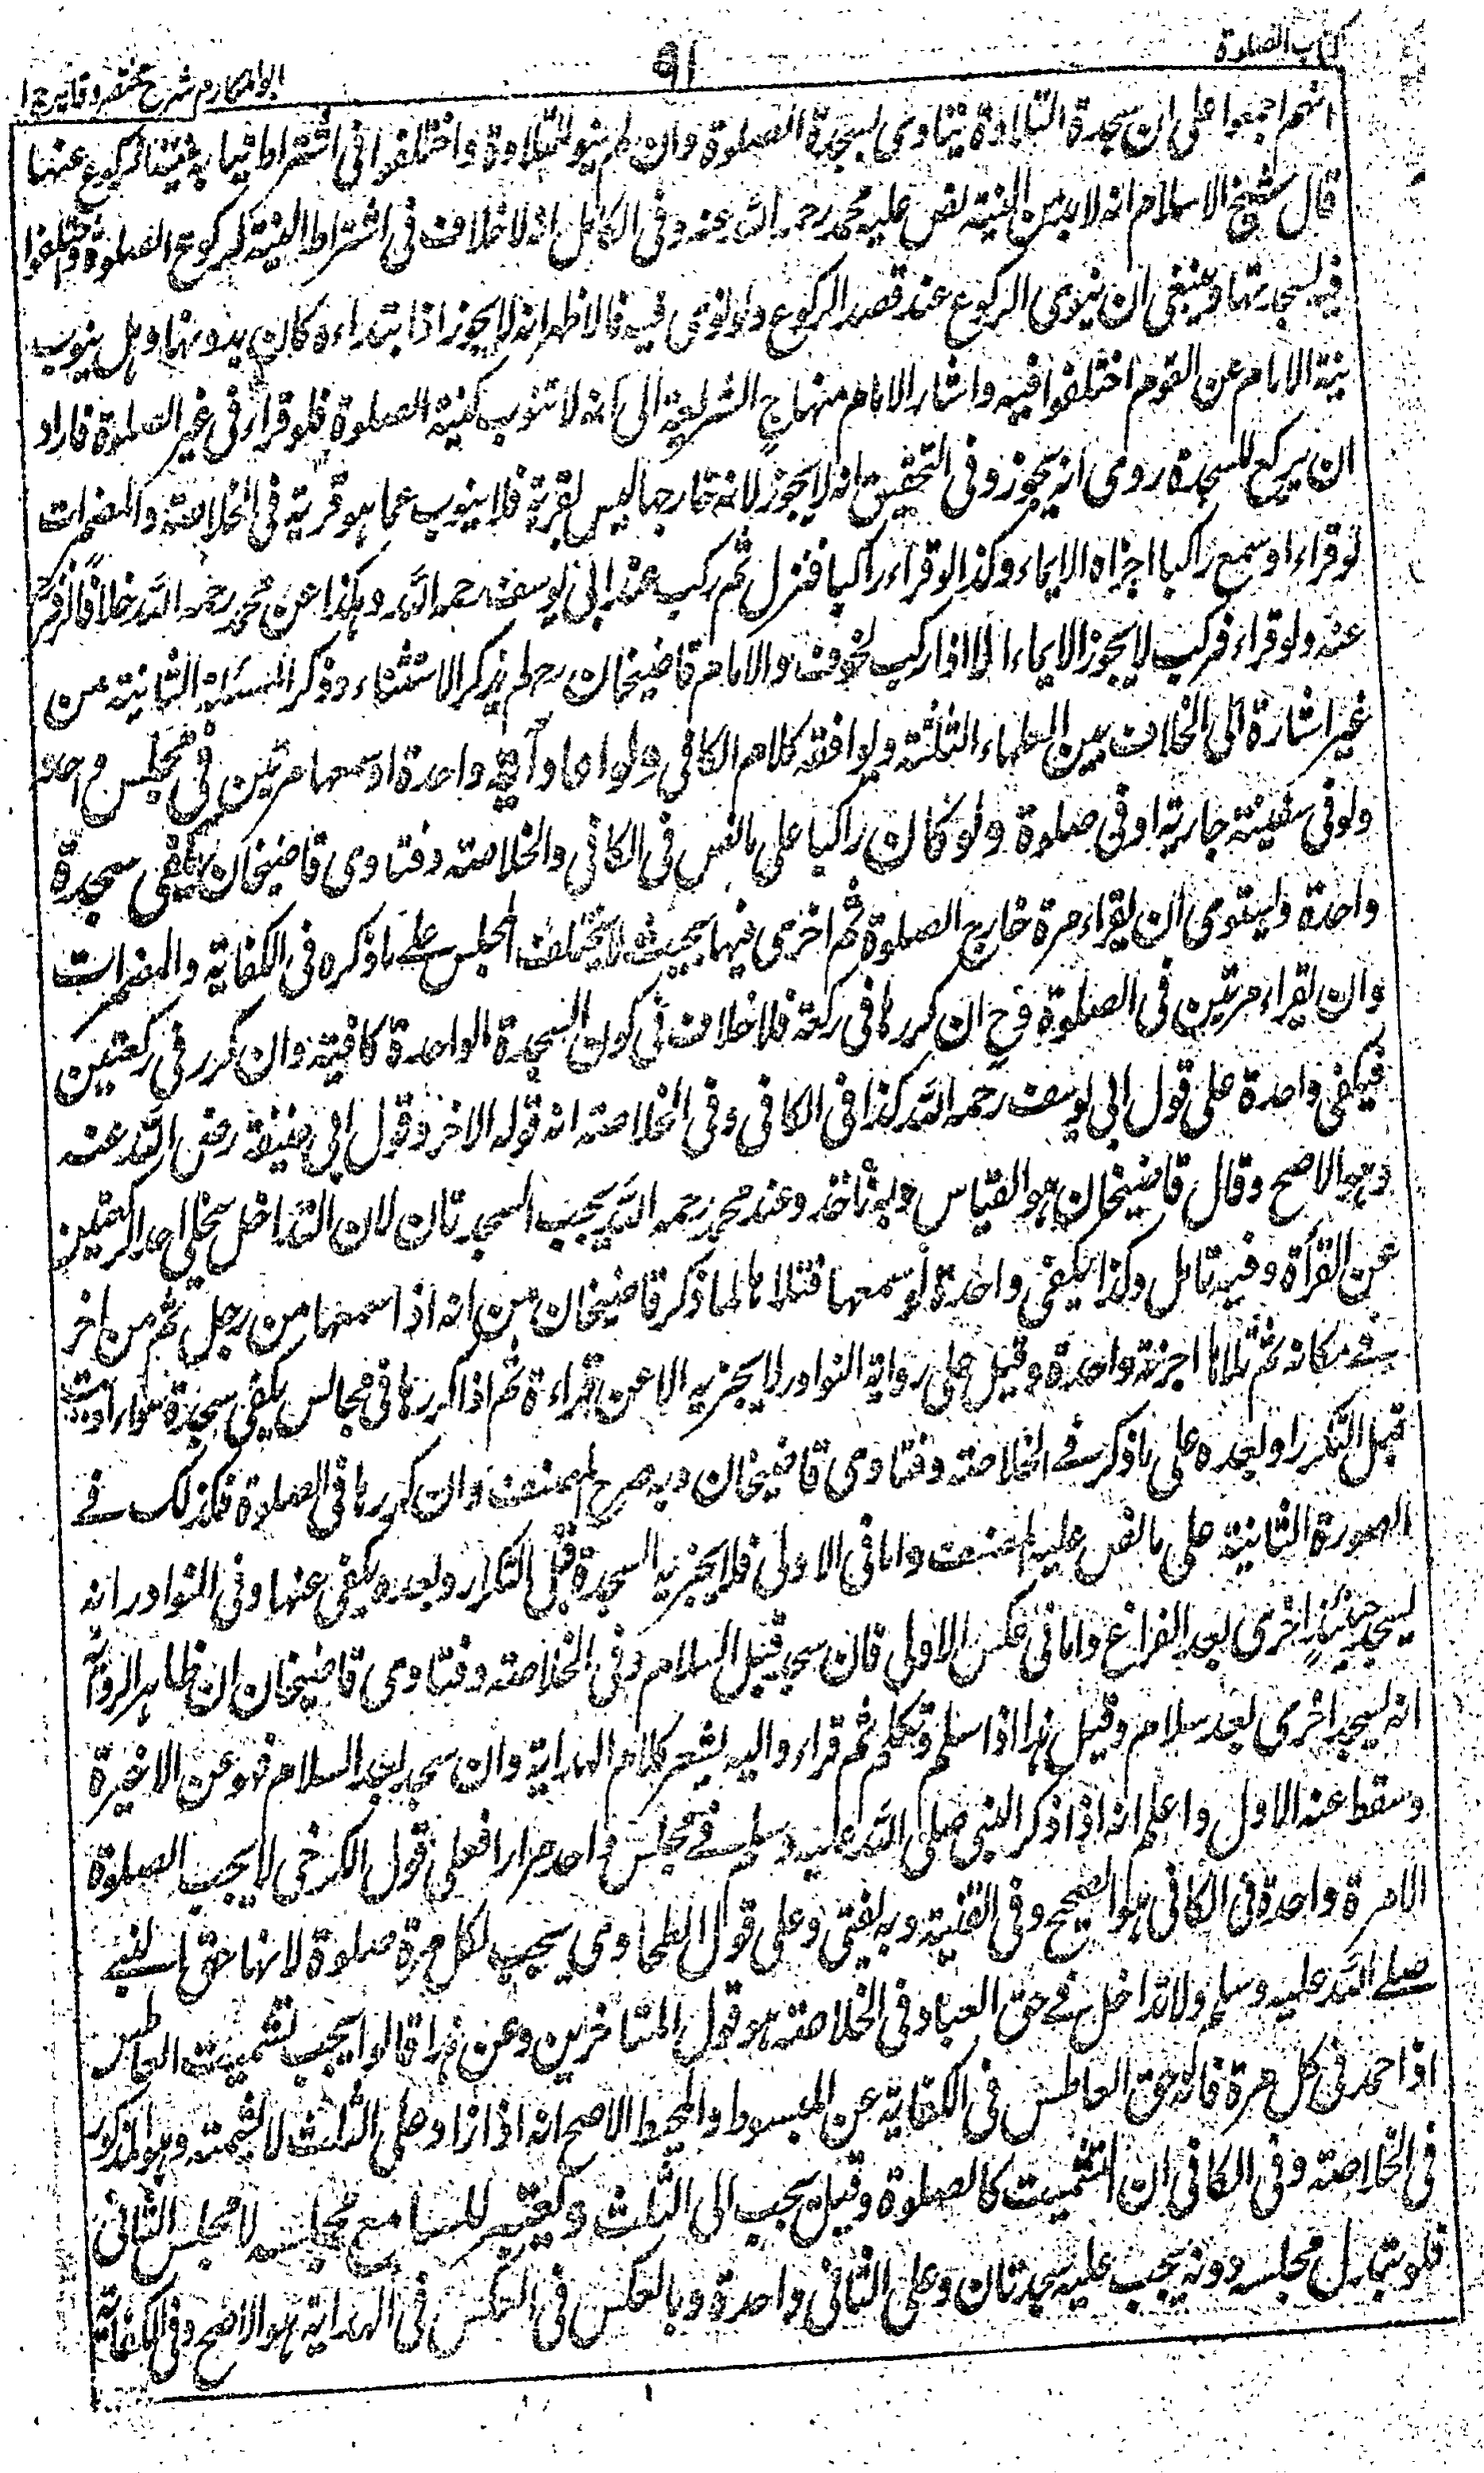 كتاب الصلوة
٩١
ابوالمكارم شرح مختصر وقايه ج ١
انهم اجمعوا على ان سجدة التلاوة يتادى بسجدة الصلوة وان لم ينو للتلاوة واختلفوا في اشتراط نيابة الركوع عنها
قال شيخ الاسلام انه لابد من النية نص عليه محمد رحمه الله عنه وفى الكامل انه لا خلاف فى اشتراط النية لركوع الصلوة واختلفوا
فى سجدتها وينبغى ان ينوى الركوع عند قصد الركوع ولو نوى فيه فالاظهر انه لا يجوز اذا ابتداءه كان بدونها وهل ينوب
نية الامام عن القوم اختلفوا فيه واشار الامام منهاج الشريعة الى انه لا تنوب كنية الصلوة فلو قراء فى غير الصلوة فاراد
ان يركع للسجدة روى انه يجوز وفى التحقيق انه لا يجوز لانه خارجها ليس لقربة فلا ينوب عما هو قربة فى الخلاصة والمضمرات
لو قراء او سمع راكبا اجزاه الايماء وكذا لو قراء راكبا فنزل ثم ركب عند ابى يوسف رحمه الله وهكذا عن محمد رحمه الله خلافا لزفر
عنه ولو قراء فركب لا يجوز الايماء الا اذا ركب لخوف والامام قاضيخان رح لم يذكر الاستثناء وذكر المسئلة الثانية من
غير اشارة الى الخلاف بين العلماء الثلثة ويوافقه كلام الكافى ولو اعاد آية واحدة او سمعها مرتين فى مجلس واحد
ولو فى سفينة جارية او فى صلوة ولو كان راكبا على ما نص فى الكافى والخلاصة وفتاوى قاضيخان يكفى سجدة
واحدة ويستوى ان يقراء مرة خارج الصلوة ثم اخرى فيها بحيث لا يختلف المجلس على ما ذكره فى الكفاية والمضمرات
وان يقراء مرتين فى الصلوة فح ان كررها فى ركعة فلا خلاف فى كون السجدة الواحدة كافية وان كرر فى ركعتين
فيكفى واحدة على قول ابى يوسف رحمه الله كذا فى الكافى وفى الخلاصة انه قوله الاخر وقول ابى حنيفة رضى الله عنه
وهو الاصح وقال قاضيخان هو القياس وبه ناخذ وعند محمد رحمه الله يجب السجدتان لان التداخل يخلى احد الركعتين
عن القرأة وفيه تامل وكذا يكفى واحدة لو سمعها فتلاها لما ذكر قاضيخان من انه اذا سمعها من رجل ثم من اخر
فى مكانه ثم تلاها اجزته واحدة وقيل على رواية النوادر لا يجزيه الا عن قراءة ثم اذا كررها فى مجالس يكفى سجدة سواء اديت
قبل التكرار او بعده على ما ذكر فى الخلاصة وفتاوى قاضيخان وبه صرح المصنف وان كررها فى الصلوة فكذلك فى
الصورة الثانية على ما نص عليه المصنف واما فى الاولى فلا يجزيه السجدة قبل التكرار وبعده يكفى عنها وفى النوادر انه
يسجد حينئذ اخرى بعد الفراغ واما فى عكس الاولى فان سجد قبل السلام وفى الخلاصة وفتاوى قاضيخان ان ظاهر الرواية
انه يسجد اخرى بعد سلام وقيل هذا اذا سلم وتكلم ثم قراء واليه يشير كلام الهداية وان سجد بعد السلام فهو عن الاخيرة
وسقط عنه الاول واعلم انه اذا ذكر النبى صلى الله عليه وسلم فى مجلس واحد مرارا فعلى قول الكرخى لا يجب الصلوة
الا مرة واحدة فى الكافى هو الصحيح وفى القنية وبه يفتى وعلى قول الطحاوى يجب لكل مرة صلوة لانها حق النبى
صلى الله عليه وسلم ولا تداخل فى حق العباد وفى الخلاصة هو قول المتاخرين وعن هذا قالوا يجب تشميت العاطس
اذا حمد فى كل مرة فانه حق العاطس فى الكفاية عن المبسوط والمحيط الاصح انه اذا زاد على الثلث لا يشمته وهو المذكور
فى الخلاصة وفى الكافى ان التشميت كالصلوة وقيل يجب الى الثلث ويعتبر للسامع مجلسه لا مجلس التالى
فلو تبدل مجلسه دونه يجب عليه سجدتان وعلى الثانى واحدة وبالعكس فى العكس فى الهداية هو الاصح وفى الكفاية